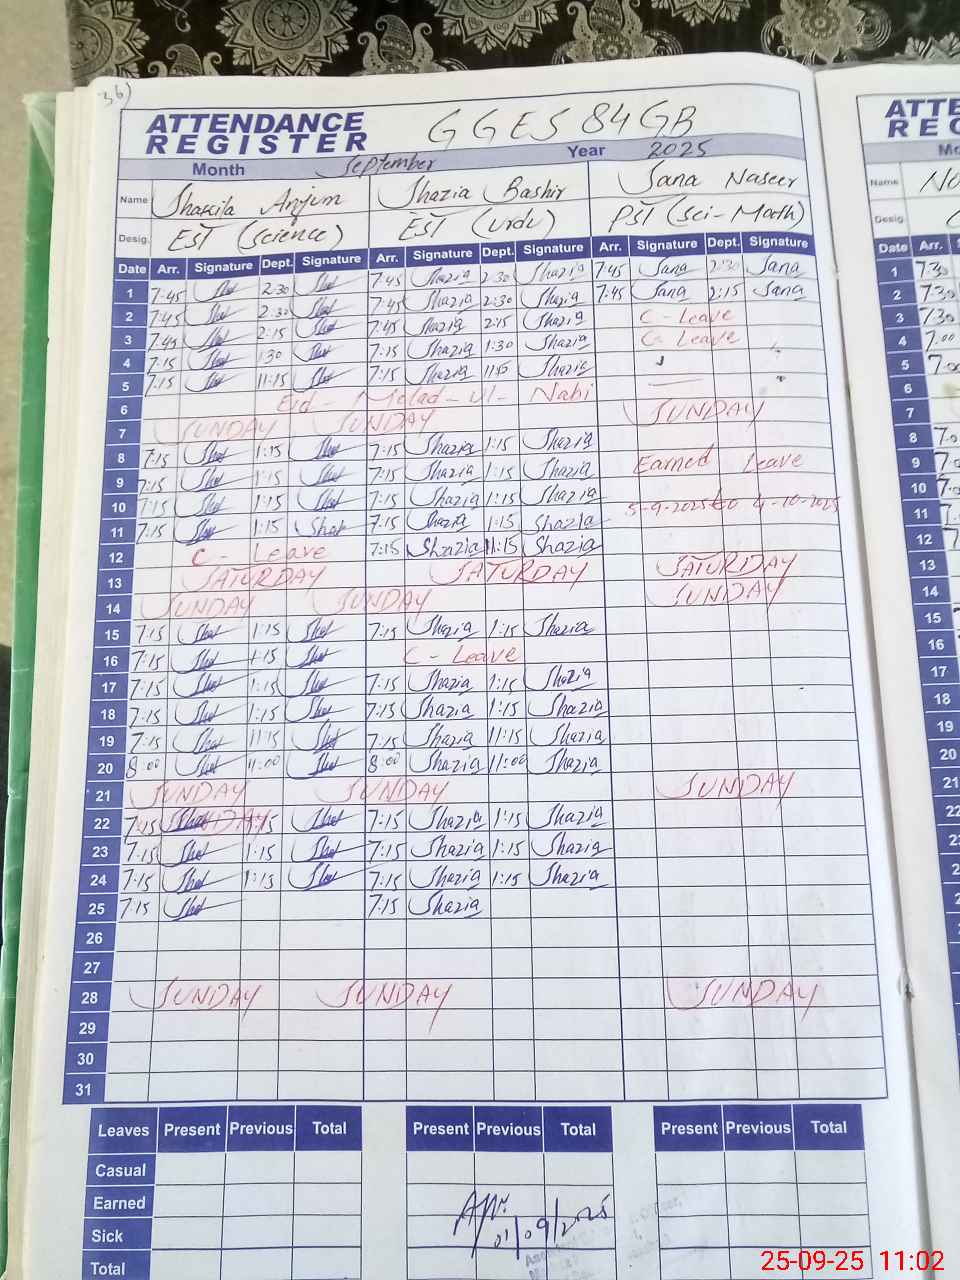 36)
ATTENDANCE REGISTER GGES 84GB
Month September Year 2025
Name Shakila Anjum Shazia Bashir Sana Naseer
Desig. EST (Science) EST (Urdu) PST (Sci-Math)
Date Arr. Signature Dept. Signature Arr. Signature Dept. Signature Arr. Signature Dept. Signature
1 7:45 2:30 7:45 Shazia 2:30 Shazia 7:45 Sana 2:30 Sana
2 7:45 2:30 7:45 Shazia 2:30 Shazia 7:45 Sana 2:15 Sana
3 7:45 2:15 7:45 Shazia 2:15 Shazia C-Leave
4 7:15 1:30 7:15 Shazia 1:30 Shazia C-Leave
5 7:15 11:15 7:15 Shazia 11:15 Shazia
6 Eid-Melad-ul-Nabi
7 SUNDAY SUNDAY SUNDAY
8 7:15 1:15 7:15 Shazia 1:15 Shazia
9 7:15 1:15 7:15 Shazia 1:15 Shazia Earned Leave
10 7:15 1:15 7:15 Shazia 1:15 Shazia
11 7:15 1:15 7:15 Shazia 1:15 Shazia 5-9-2025 to 4-10-2025
12 C-Leave 7:15 Shazia 11:15 Shazia
13 SATURDAY SATURDAY SATURDAY
14 SUNDAY SUNDAY SUNDAY
15 7:15 1:15 7:15 Shazia 1:15 Shazia
16 7:15 1:15 C-Leave
17 7:15 1:15 7:15 Shazia 1:15 Shazia
18 7:15 1:15 7:15 Shazia 1:15 Shazia
19 7:15 11:15 7:15 Shazia 11:15 Shazia
20 8:00 11:00 8:00 Shazia 11:00 Shazia
21 SUNDAY SUNDAY SUNDAY
22 7:15 7:15 Shazia 1:15 Shazia
23 7:15 1:15 7:15 Shazia 1:15 Shazia
24 7:15 1:15 7:15 Shazia 1:15 Shazia
25 7:15 7:15 Shazia
26
27
28 SUNDAY SUNDAY SUNDAY
29
30
31
Leaves Present Previous Total Present Previous Total Present Previous Total
Casual
Earned
Sick
Total
01/09/2025
ATTE
REG
Name
Desig.
Date Arr.
1 7:30
2 7:30
3 7:30
4 7:00
5
6
7
8
9
10
11
12
13
14
15
16
17
18
19
20
21
25-09-25 11:02